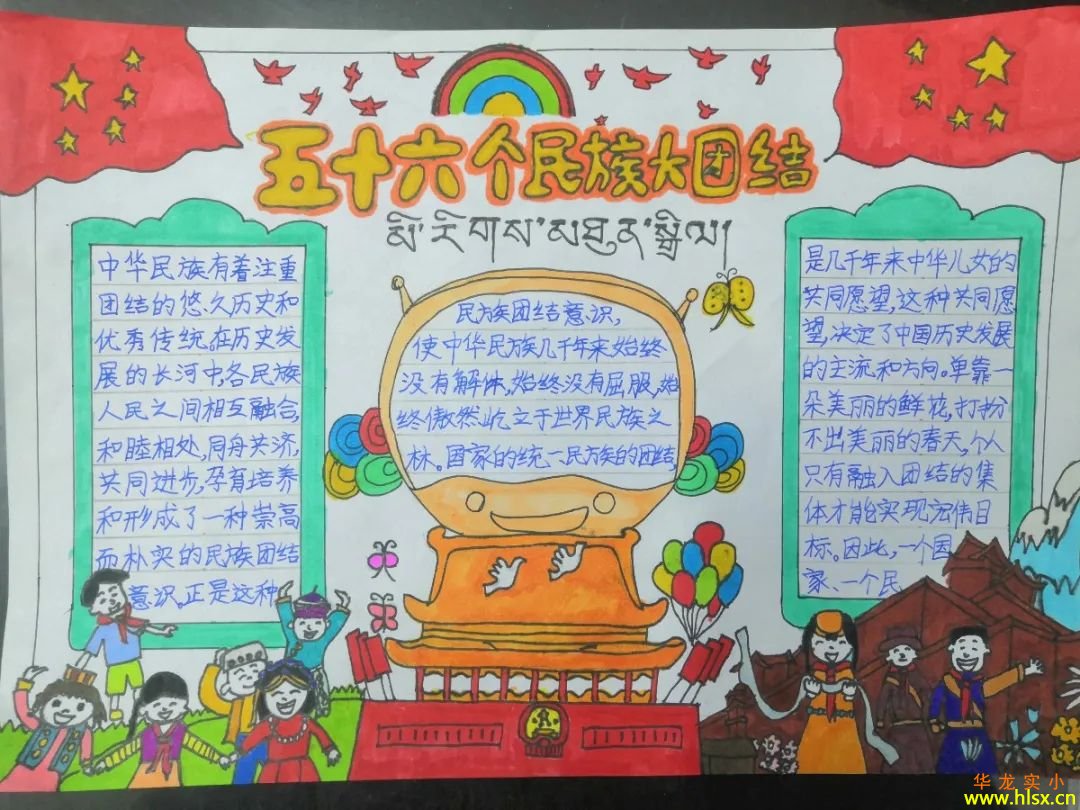 五十六个民族大团结
མི་རིགས་མཐུན་སྒྲིལ།
中华民族有着注重
团结的悠久历史和
优秀传统,在历史发
展的长河中,各民族
人民之间相互融合,
和睦相处,同舟共济,
共同进步,孕育培养
和形成了一种崇高
而朴实的民族团结
意识。正是这种
民族团结意识,
使中华民族几千年来始终
没有解体,始终没有屈服,始
终傲然屹立于世界民族之
林。国家的统一民族的团结,
是几千年来中华儿女的
共同愿望,这种共同愿
望,决定了中国历史发展
的主流和方向。单靠一
朵美丽的鲜花,打扮
不出美丽的春天,个人
只有融入团结的集
体才能实现宏伟目
标。因此,一个国
家、一个民
华龙实小
www.hlsx.cn